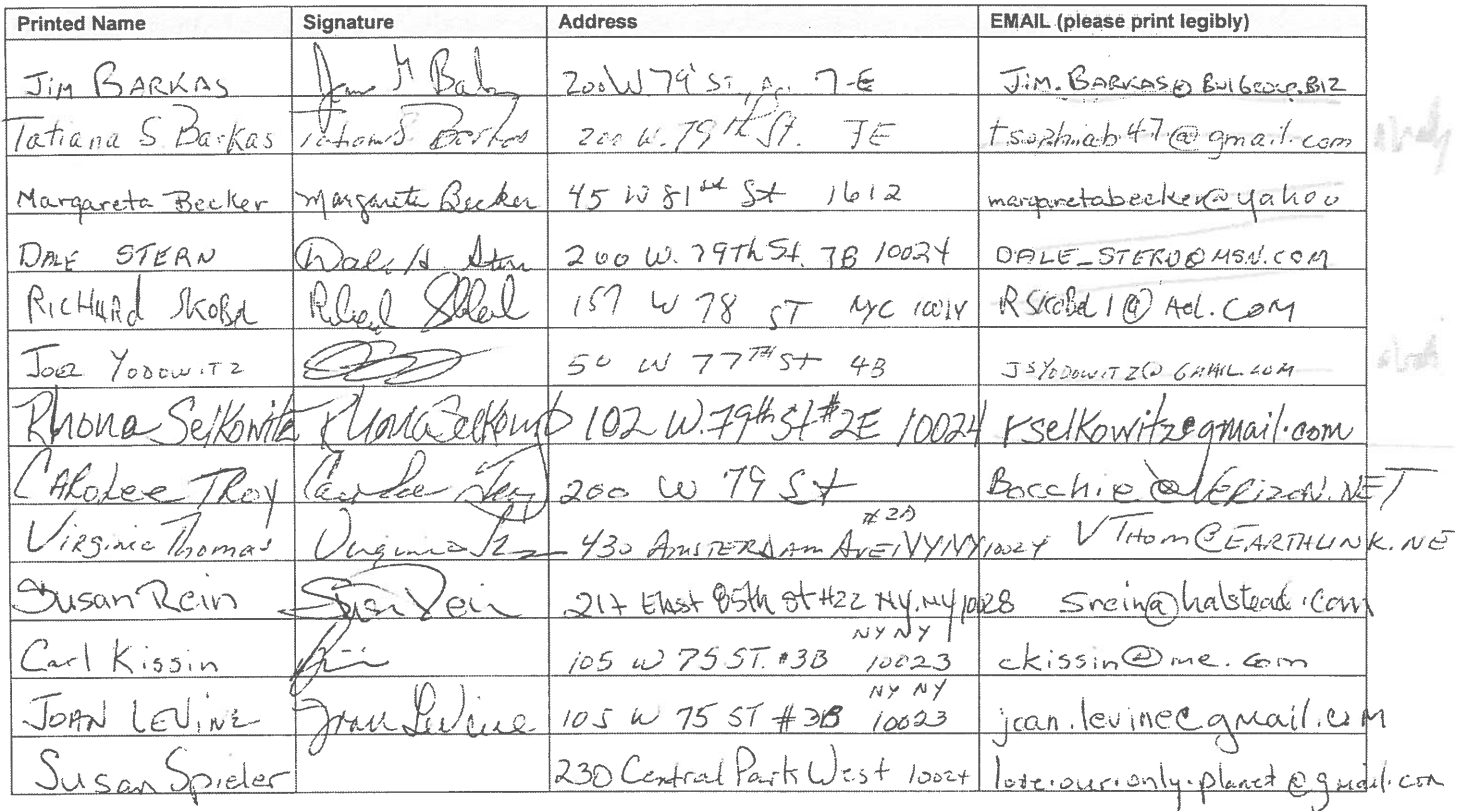 Printed Name Signature Address EMAIL (please print legibly)
JIM BARKAS 200 W 79 ST, 7-E JIM.BARKAS@
Tatiana S. Barkas Tatiana S. Barkas 200 W. 79th St. 7E tsophiab47@gmail.com
Margareta Becker Margareta Becker 45 W 81st St 1612 margaretabecker@yahoo
DALE STERN Dale H. Stern 200 W. 79th St. 7B 10024 DALE_STERN@MSN.COM
RICHARD SKOBEL 157 W 78 ST NYC RSKOBEL1@AOL.COM
JOEL YODOWITZ 50 W 77TH St 4B JSYODOWITZ@GMAIL.COM
Rhona Selkowitz Rhona Selkowitz 102 W. 79th St #2E 10024 rselkowitz@gmail.com
CAROLEE TROY Carolee Troy 200 W 79 St Bocchie@VERIZON.NET
#2D
Virginia Thomas Virginia 430 AMSTERDAM AVE NY NY 10024 VTHOM@EARTHLINK.NE
Susan Rein Susan Rein 217 East 85th St #22 NY, NY 10028 srein@halstead.com
NY NY
Carl Kissin 105 W 75 ST. #3B 10023 ckissin@me.com
NY NY
JOAN LEVINE Joan Levine 105 W 75 ST #3B 10023 joan.levine@gmail.com
Susan Spieler 230 Central Park West 10024 love.our.only.planet@gmail.com